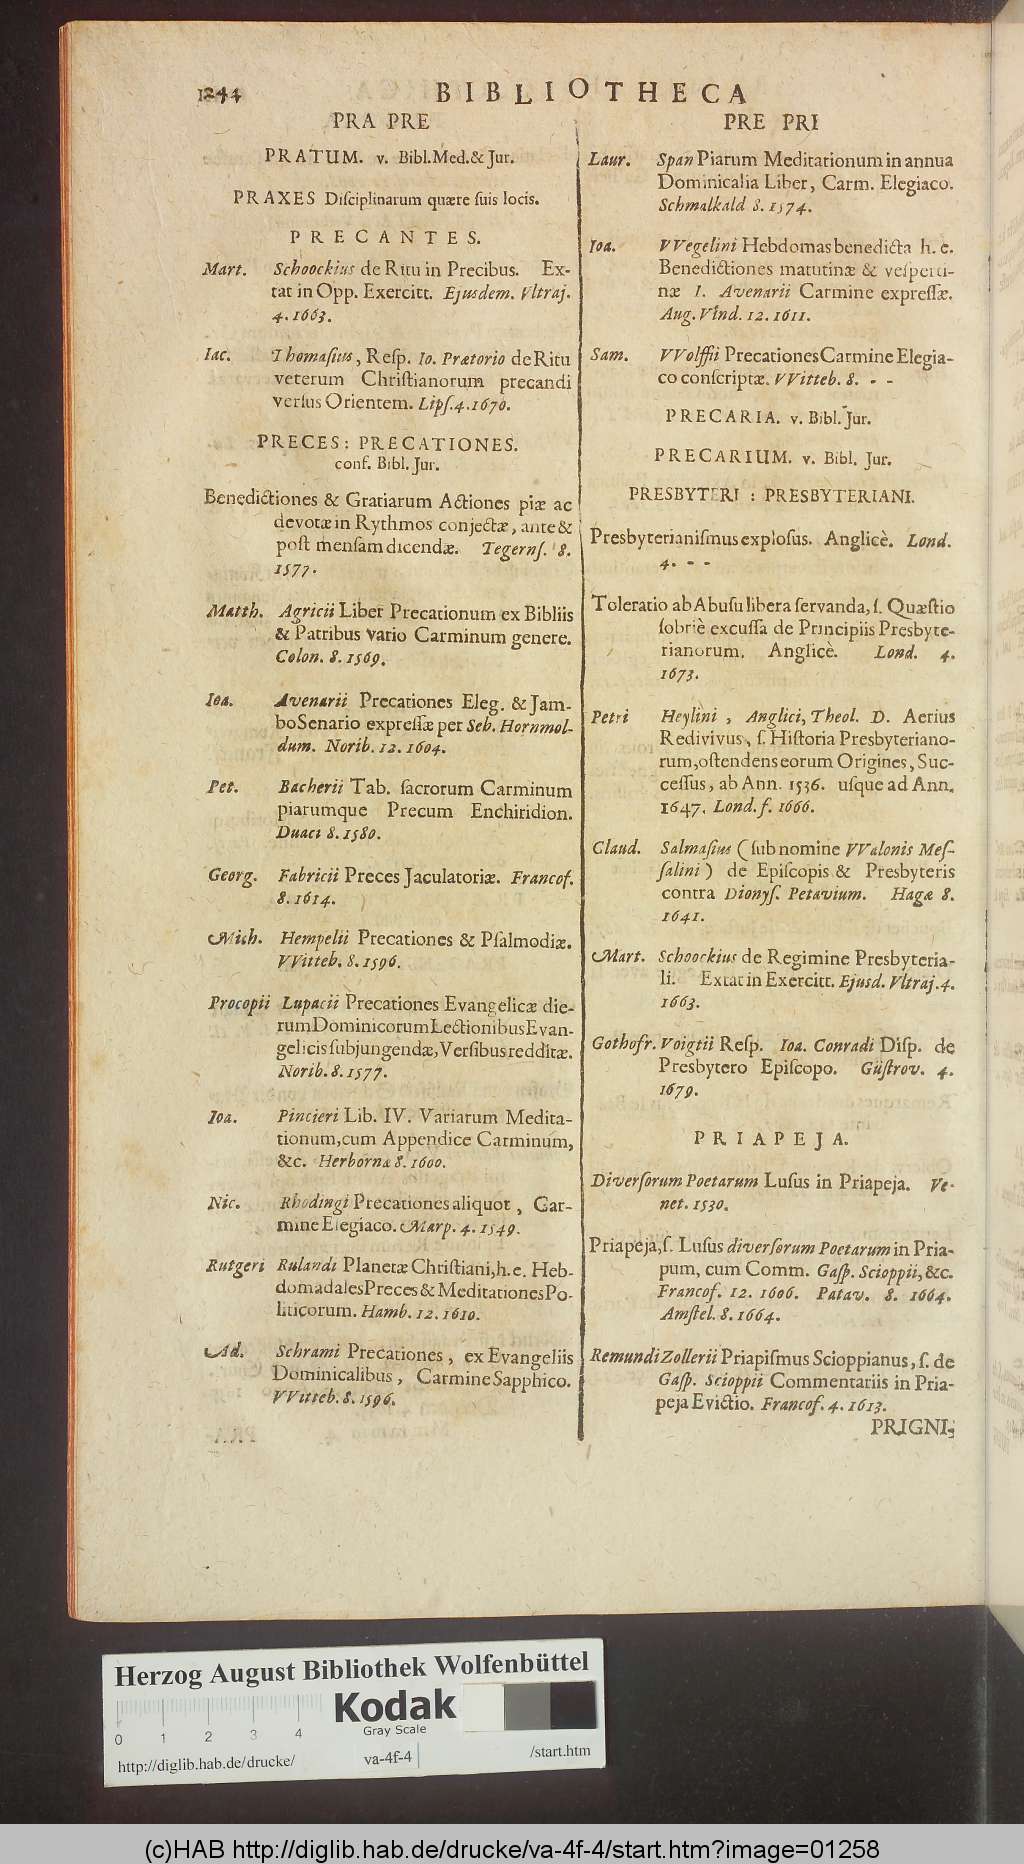 1244
BIBLIOTHECA
PRA PRE
PRATUM. v. Bibl. Med. & Jur.
PRAXES Diſciplinarum quære ſuis locis.
PRECANTES.
Mart. Schoockius de Ritu in Precibus. Ex-
tat in Opp. Exercitt. Ejusdem. Vltraj.
4. 1663.
Iac. Thomaſius, Reſp. Io. Prætorio de Ritu
veterum Chriſtianorum precandi
verſus Orientem. Lipſ. 4. 1670.
PRECES: PRECATIONES.
conf. Bibl. Jur.
Benedictiones & Gratiarum Actiones piæ ac
devotæ in Rythmos conjectæ, ante &
poſt menſam dicendæ. Tegernſ. 8.
1577.
Matth. Agricii Liber Precationum ex Bibliis
& Patribus vario Carminum genere.
Colon. 8. 1569.
Ioa. Avenarii Precationes Eleg. & Jam-
bo Senario expreſſæ per Seb. Hornmol-
dum. Norib. 12. 1604.
Pet. Bacherii Tab. ſacrorum Carminum
piarumque Precum Enchiridion.
Duaci 8. 1580.
Georg. Fabricii Preces Jaculatoriæ. Francof.
8. 1614.
Mich. Hempelii Precationes & Pſalmodiæ.
VVitteb. 8. 1596.
Procopii Lupacii Precationes Evangelicæ die-
rum Dominicorum Lectionibus Evan-
gelicis ſubjungendæ, Verſibus redditæ.
Norib. 8. 1577.
Ioa. Pincieri Lib. IV. Variarum Medita-
tionum, cum Appendice Carminum,
&c. Herbornæ 8. 1600.
Nic. Rhodingi Precationes aliquot, Car-
mine Elegiaco. Marp. 4. 1549.
Rutgeri Rulandi Planetæ Chriſtiani, h. e. Heb-
domadales Preces & Meditationes Po-
liticorum. Hamb. 12. 1610.
Ad. Schrami Precationes, ex Evangeliis
Dominicalibus, Carmine Sapphico.
VVitteb. 8. 1596.
PRE PRI
Laur. Span Piarum Meditationum in annua
Dominicalia Liber, Carm. Elegiaco.
Schmalkald 8. 1574.
Ioa. VVegelini Hebdomas benedicta h. e.
Benedictiones matutinæ & veſperti-
næ I. Avenarii Carmine expreſſæ.
Aug. Vind. 12. 1611.
Sam. VVolffii Precationes Carmine Elegia-
co conſcriptæ. VVitteb. 8. - -
PRECARIA. v. Bibl. Jur.
PRECARIUM. v. Bibl. Jur.
PRESBYTERI: PRESBYTERIANI.
Presbyterianiſmus exploſus. Anglicè. Lond.
4. - -
Toleratio ab Abuſu libera ſervanda, ſ. Quæſtio
ſobriè excuſſa de Principiis Presbyte-
rianorum. Anglicè. Lond. 4.
1673.
Petri Heylini, Anglici, Theol. D. Aerius
Redivivus, ſ. Hiſtoria Presbyteriano-
rum, oſtendens eorum Origines, Suc-
ceſſus, ab Ann. 1536. uſque ad Ann.
1647. Lond. f. 1666.
Claud. Salmaſius (ſub nomine VValonis Meſ-
ſalini) de Epiſcopis & Presbyteris
contra Dionyſ. Petavium. Hagæ 8.
1641.
Mart. Schoockius de Regimine Presbyteria-
li. Extat in Exercitt. Ejusd. Vltraj. 4.
1663.
Gothofr. Voigtii Reſp. Ioa. Conradi Diſp. de
Presbytero Epiſcopo. Güſtrov. 4.
1679.
PRIAPEJA.
Diverſorum Poetarum Luſus in Priapeja. Ve-
net. 1530.
Priapeja, ſ. Luſus diverſorum Poetarum in Pria-
pum, cum Comm. Gaſp. Scioppii, &c.
Francof. 12. 1606. Patav. 8. 1664.
Amſtel. 8. 1664.
Remundi Zollerii Priapiſmus Scioppianus, ſ. de
Gaſp. Scioppii Commentariis in Pria-
peja Evictio. Francof. 4. 1613.
PRIGNI-
Herzog August Bibliothek Wolfenbüttel
Kodak
Gray Scale
0 1 2 3 4
http://diglib.hab.de/drucke/ va-4f-4 /start.htm
(c)HAB http://diglib.hab.de/drucke/va-4f-4/start.htm?image=01258